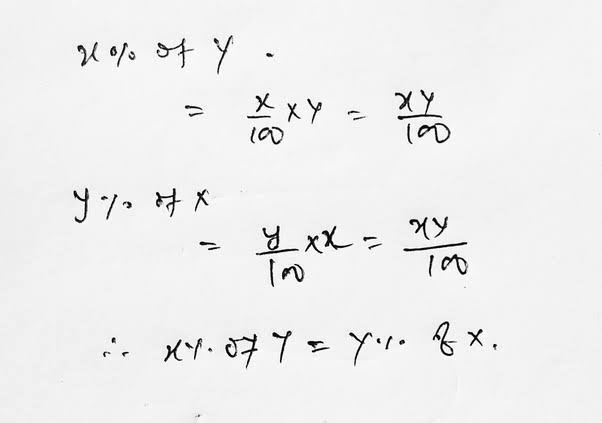 x% of y.
= x/100 × y = xy/100
y% of x
= y/100 × x = xy/100
∴ x% of y = y% of x.